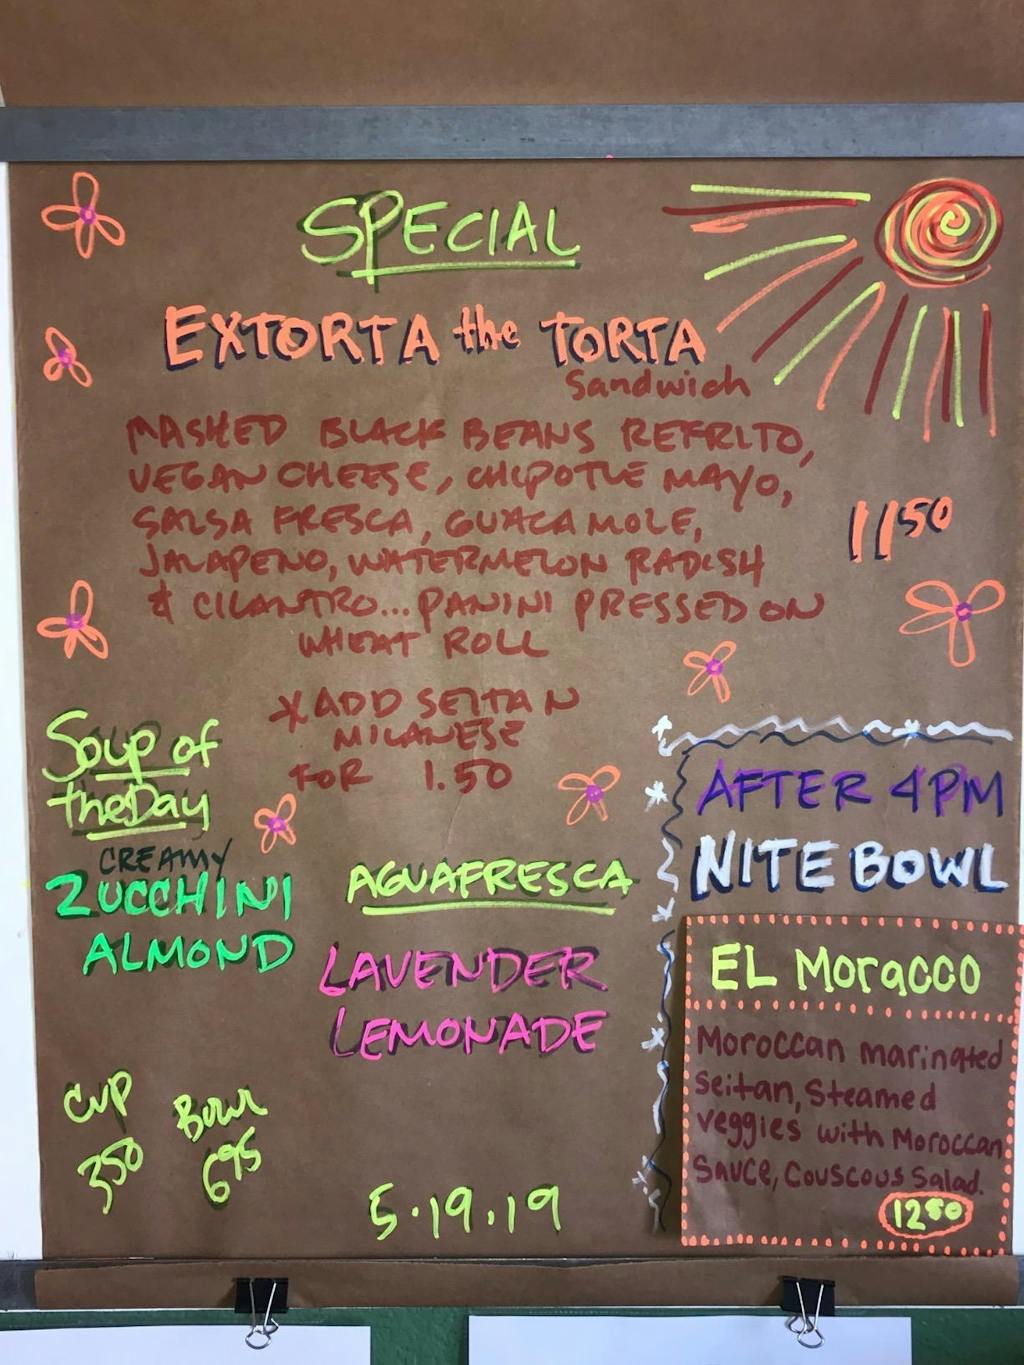 SPECIAL
EXTORTA the TORTA
Sandwich
MASHED BLACK BEANS REFRITO,
VEGAN CHEESE, CHIPOTLE MAYO,
SALSA FRESCA, GUACAMOLE,
JALAPENO, WATERMELON RADISH
& CILANTRO... PANINI PRESSED ON
WHEAT ROLL
1150
*ADD SEITAN
MILANESE
FOR 1.50
Soup of
the Day
CREAMY
ZUCCHINI
ALMOND
CUP
350
Bowl
695
AGUAFRESCA
LAVENDER
LEMONADE
5.19.19
AFTER 4PM
NITE BOWL
EL Moracco
Moroccan marinated
seitan, Steamed
veggies with Moroccan
Sauce, Couscous Salad.
1250